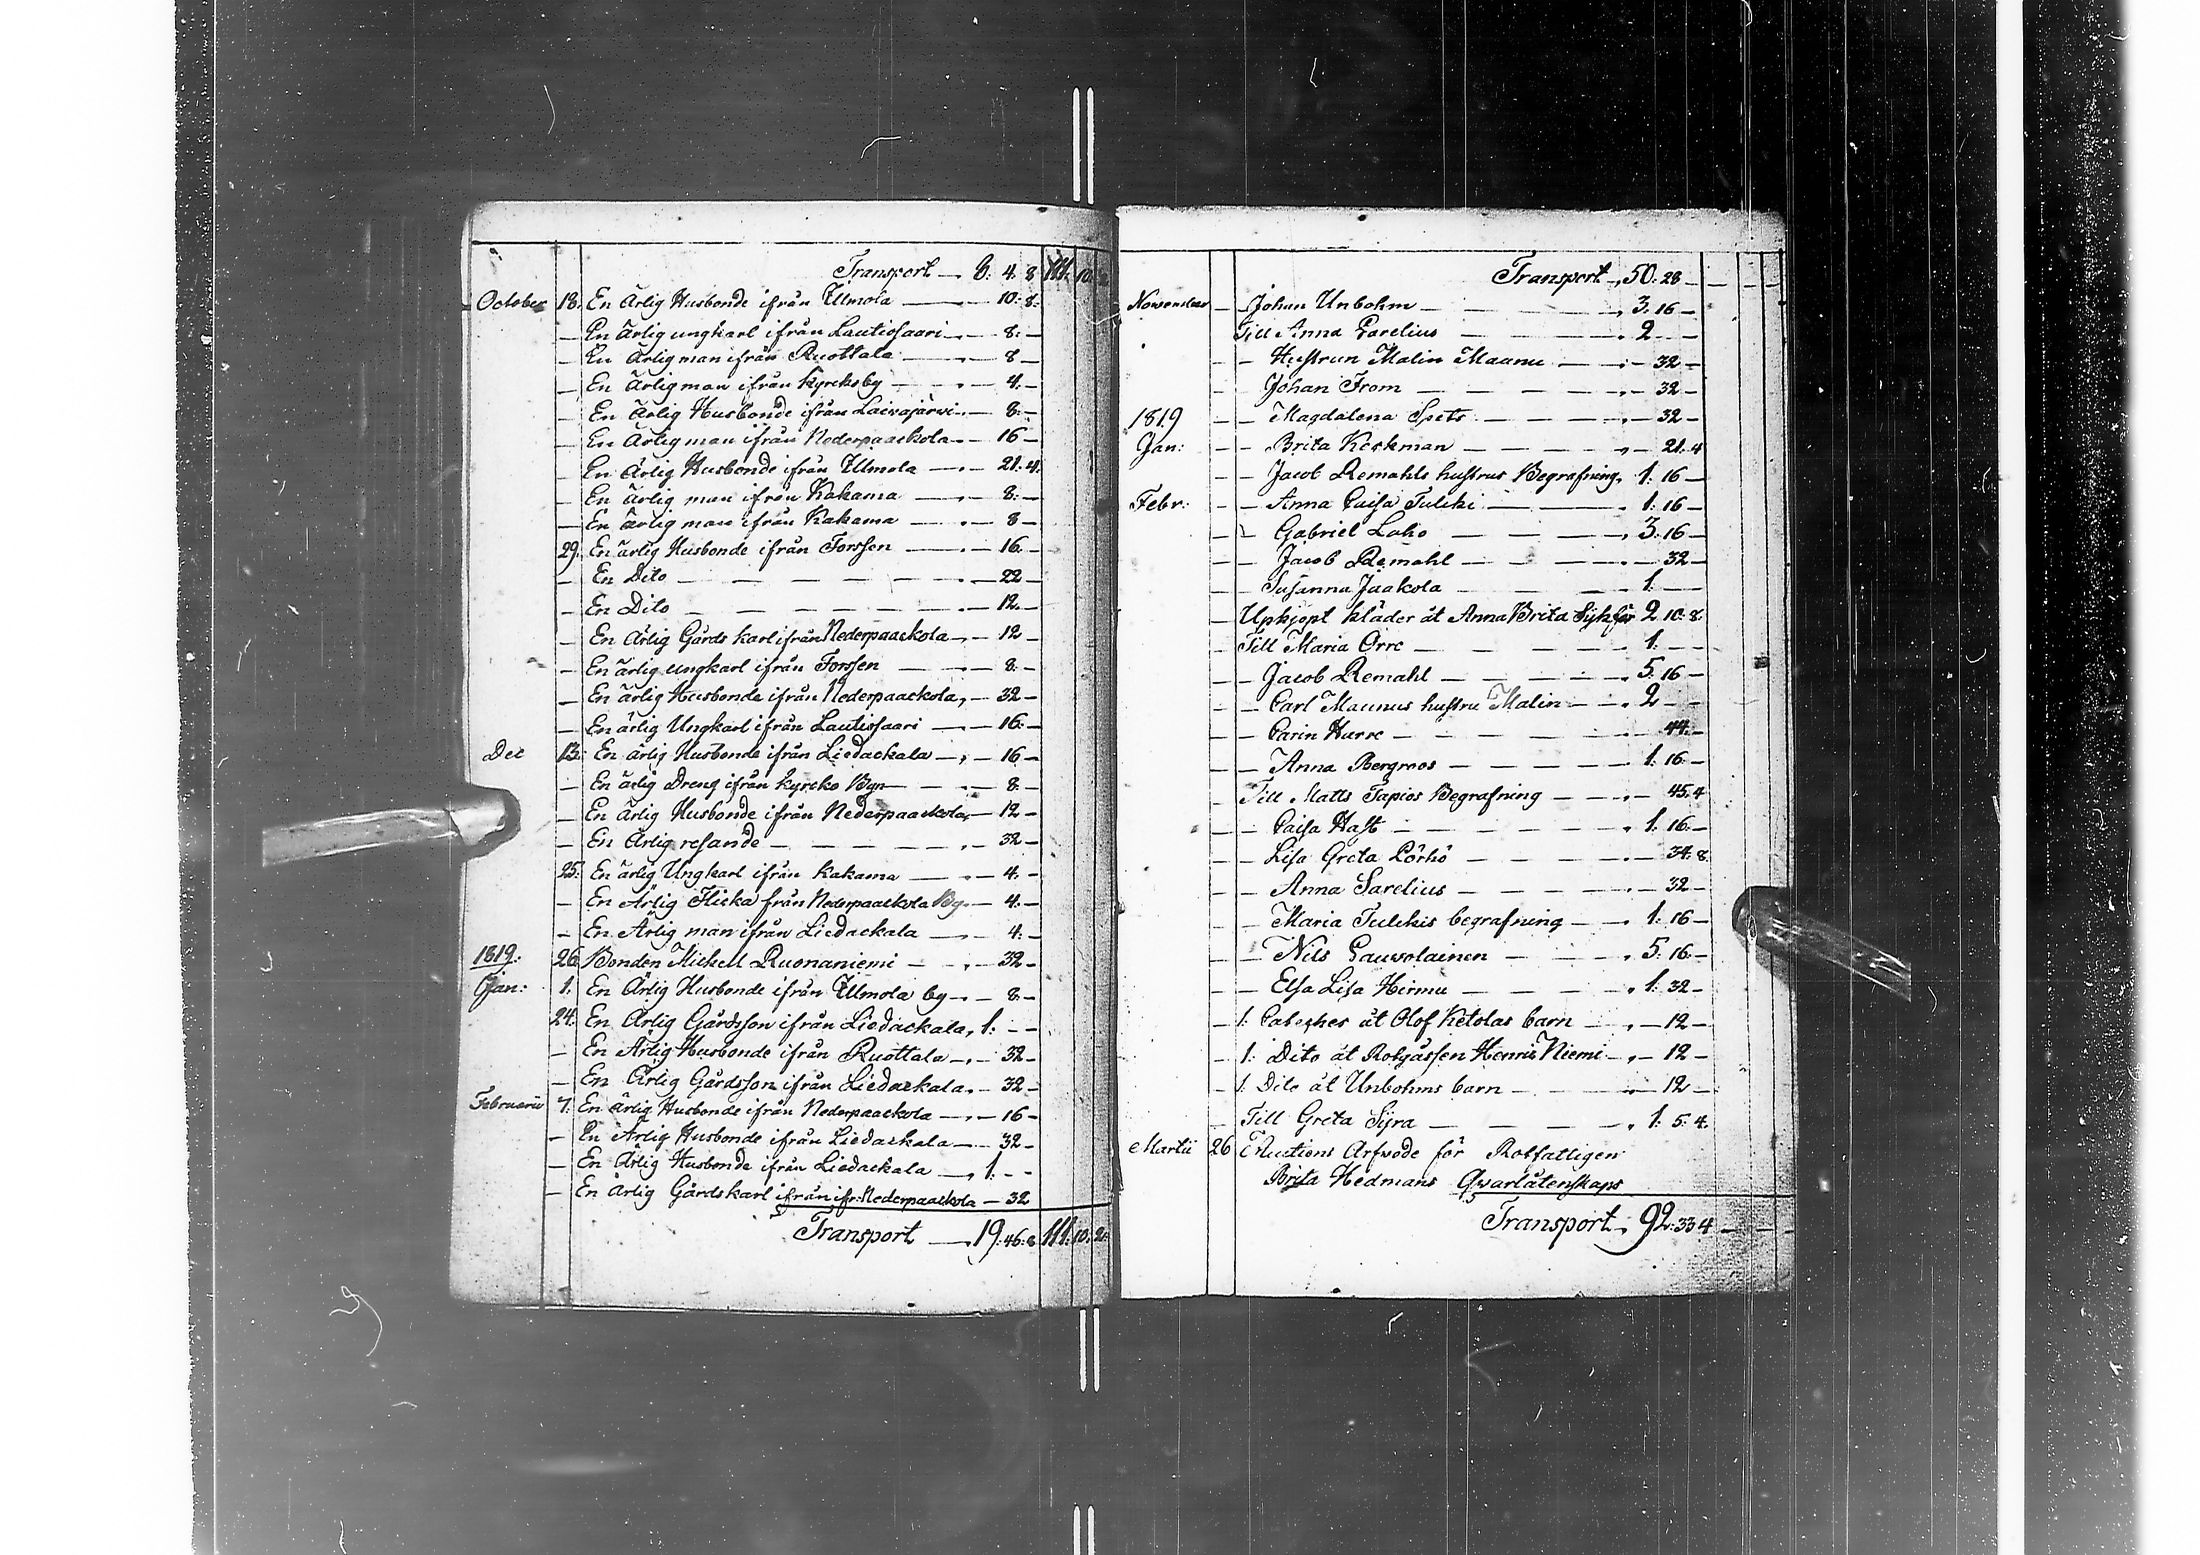 Transport — 6. 4. 8 111. 10. 2
October 18. En Ärlig Husbonde ifrån Ylimola — 10. 8.
— En ärlig ungkarl ifrån Lautiosaari — 8. —
— En Ärlig man ifrån Ruottala — 8 —
— En ärlig man ifrån Kyrckoby — 4. —
— En ärlig Husbonde ifrån Laivajärvi — 8. —
— En Ärlig man ifrån Nederpaackola — 16 —
— En Ärlig Husbonde ifrån Ylimola — 21. 4.
— En ärlig man ifrån Kakama — 8. —
— En ärlig man ifrån Kakama — 8 —
29. En ärlig Husbonde ifrån Torssen — 16 —
— En Dito — 22 —
— En Dito — 12. —
— En Ärlig Gårds karl ifrån Nederpaackola — 12 —
— En ärlig ungkarl ifrån Torssen — 8. —
— En ärlig Husbonde ifrån Nederpaackola — 32 —
— En ärlig Ungkarl ifrån Lautiosaari — 16. —
Dec 13. En ärlig Husbonde ifrån Liedackala — 16 —
— En ärlig Dreng ifrån Kyrcko Byn — 8. —
— En Ärlig Husbonde ifrån Nederpaackola — 12 —
— En Ärlig resande — 32 —
25. En ärlig Ungkarl ifrån Kakama — 4. —
— En Ärlig Flicka från Nederpaackola By — 4. —
— En Ärlig man ifrån Liedackala — 4. —
1819. 26 Bonden Mickell Ruonaniemi — 32 —
Jan: 1. En Ärlig Husbonde ifrån Ylimola by — 8. —
24. En Ärlig Gårdsson ifrån Liedackala, 1. — —
— En Ärlig Husbonde ifrån Ruottala — 32 —
— En Ärlig Gårdsson ifrån Liedackala — 32 —
Februarii 7. En ärlig Husbonde ifrån Nederpaackola — 16 —
— En Ärlig Husbonde ifrån Liedackala — 32 —
— En Ärlig Husbonde ifrån Liedackala — 1. — —
— En ärlig Gårdskarl ifrån ifr: Nederpaackola — 32
Transport — 19. 46. 8 111. 10. 2.
Transport — 50. 28 —
November — Johan Unbohm — 3. 16 —
Till Anna Sarelius — 2 — —
— — Hustrun Malin Maanu — 32 —
— — Johan From — 32 —
1819 — — Magdalena Spets — 32 —
Jan: — — Brita Keckman — 21. 4
— — Jacob Remahls hustrus Begrafning 1. 16 —
Febr: — — Anna Caisa Tulcki — 1. 16 —
— — Gabriel Laho — 3. 16 —
— — Jacob Remahl — 32 —
Susanna Jaakola — 1. — —
— Upkjöpt kläder åt Anna Brita 2 10. 8.
— Till Maria Orre — 1. — —
— — Jacob Remahl — 5. 16 —
— — Carl Maunus hustru Malin — 2 — —
— — Carin Hurre — 44. —
— — Anna Bergroos — 1. 16 —
— Till Matts Tapios Begrafning — 45. 4
— — Caisa Hast — 1. 16. —
— — Lisa Greta Lörhö — 34. 8.
— — Anna Sarelius — 32 —
— — Maria Tulckis begrafning — 1. 16 —
— — Nils Pauvolainen — 5. 16. —
— — Elsa Lisa Hirmu — 1. 32 —
— 1. Cateches åt Olof Ketolas barn — 12 —
— 1. Dito åt Rotgåssen Henric Niemi — 12 —
— 1. Dito åt Unbohms barn — 12 —
— Till Greta Sijra — 1. 5. 4.
Martii 26 Auctions Arfvode för Rotfattigen
Brita Hedmans Qvarlåtenskaps
Transport — 92. 33 4 — — —